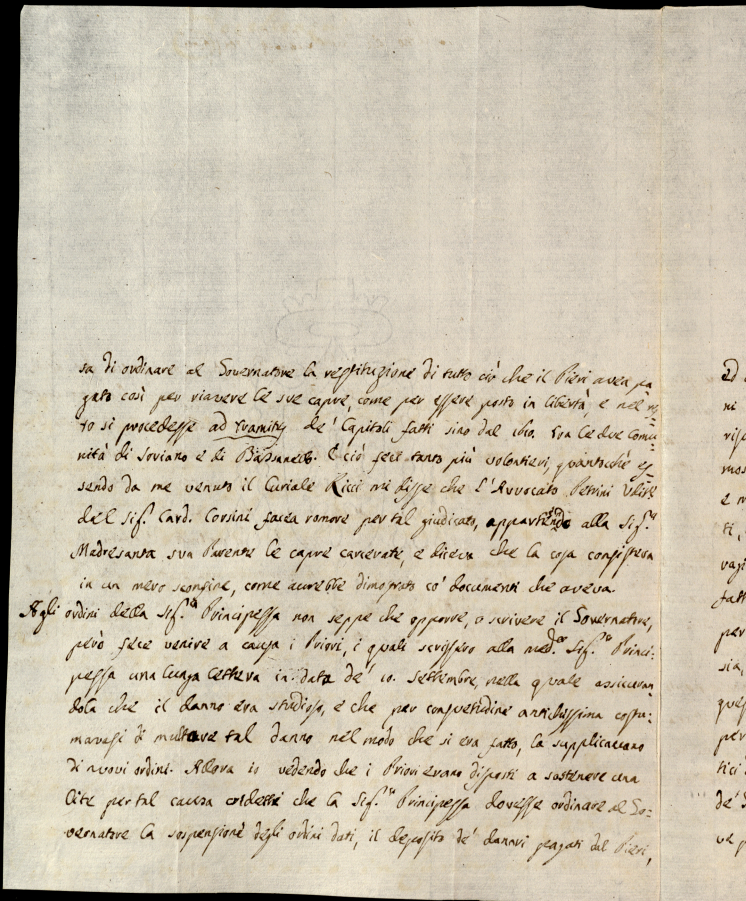 sa di ordinare al Governatore la restituzione di tutto ciò che il Pieri avea pa
gato così per riavere le sue capre, come per essere posto in libertà, e nel re
to si procedesse ad tramites de' Capitoli fatti sino dal tra le due Comu=
nità di Soviano e di Bassanello. E ciò feci tanto più volontieri, quantoché es
sendo da me venuto il Curiale Ricci mi disse che l'Avvocato Petrini
del Sig.r Card. Corsini facea romore per tal giudicato, appartenendo alla Sig.ra
Madresanta sua Parente le capre carcerate, e diceva che la cosa consisteva
in un mero sconfine, come avrebbe dimostrato co' documenti che aveva.
Agli ordini della Sig.ra Principessa non seppe che opporre, o scrivere il Governatore,
però fece venire a causa i Priori, i quali scrissero alla med.ma Sig.ra Princi=
pessa una lunga lettera in data de' 10. Settembre, nella quale assicuran
dola che il danno era studioso, e che per consuetudine antichissima costu=
mavasi di multare tal danno nel modo che si era fatto, la supplicavano
di nuovi ordini. Allora io vedendo che i Priori erano disposti a sostenere una
lite per tal causa credetti che la Sig.ra Principessa dovesse ordinare al Go=
vernatore la sospensione degli ordini dati, il deposito de' danari pagati dal Pieri,
ed
ni
mos
e
ti,
fatt
per
sia,
per
tici
de'